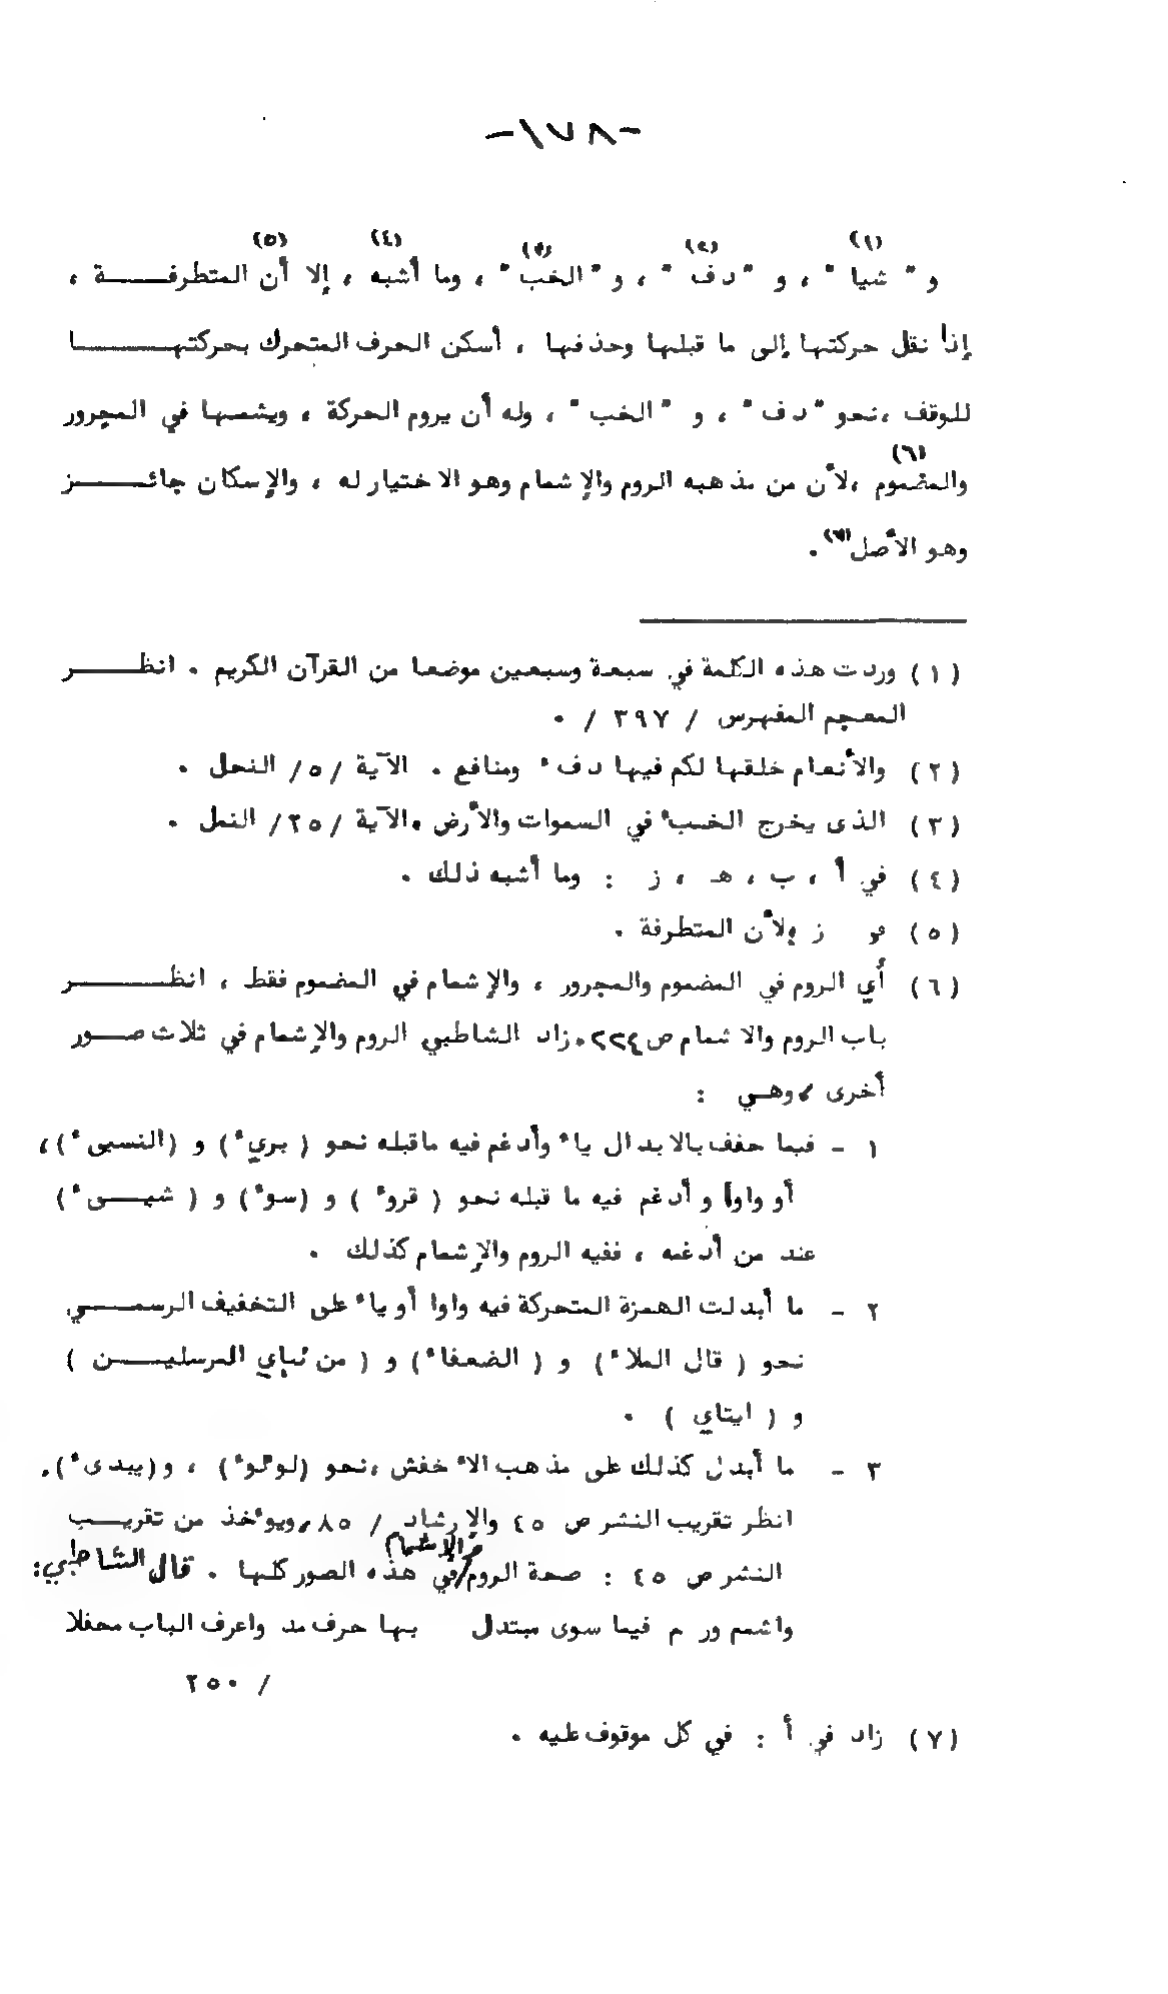 -١٧٨-
و " شيا " (١) ، و " دف " (٢) ، و " الخب " (٣) ، وما أشبه (٤) ، إلا أن (٥) المتطرفة ،
إذا نقل حركتها إلى ما قبلها وحذفها ، أسكن الحرف المتحرك بحركتها
للوقف ،نحو " دف " ، و " الخب " ، وله أن يروم الحركة ، ويشمها في المجرور
والمضموم (٦) ،لأن من مذهبه الروم والإشمام وهو الاختيار له ، والإسكان جائز
وهو الأصل (٧) .
(١) وردت هذه الكلمة في سبعة وسبعين موضعا من القرآن الكريم . انظر
المعجم المفهرس / ٣٩٧ / .
(٢) والأنعام خلقها لكم فيها دفء ومنافع . الآية /٥/ النحل .
(٣) الذى يخرج الخبء في السموات والأرض .الآية /٢٥/ النمل .
(٤) في أ ، ب ، هـ ، ز : وما أشبه ذلك .
(٥) ز ولأن المتطرفة .
(٦) أي الروم في المضموم والمجرور ، والإشمام في المضموم فقط ، انظر
باب الروم والاشمام ص ٢٢٤.زاد الشاطبي الروم والإشمام في ثلاث صور
أخرى ، وهي :
١ - فيما خفف بالابدال ياء وأدغم فيه ماقبله نحو ( بريء) و (النسىء)،
أو واوا و أدغم فيه ما قبله نحو ( قروء ) و (سوء) و ( شيىء)
عند من أدغمه ، ففيه الروم والإشمام كذلك .
٢ - ما أبدلت الهمزة المتحركة فيه واوا أو ياء على التخفيف الرسمي
نحو ( قال الملاء) و ( الضعفاء) و ( من نباي المرسلين )
و ( ايتاي ) .
٣ - ما أبدل كذلك على مذهب الأخفش ،نحو (لوءلوء) ، و(يبدىء).
انظر تقريب النشر ص ٤٥ والإرشاد / ٨٥،ويوءخذ من تقريب
النشر ص ٤٥ : صحة الروم/والإشمام في هذه الصور كلها . قال الشاطبي:
واشمم ورم فيما سوى مبتدل بها حرف مد واعرف الباب محفلا
/ ٢٥٠
(٧) زاد في أ : في كل موقوف عليه .